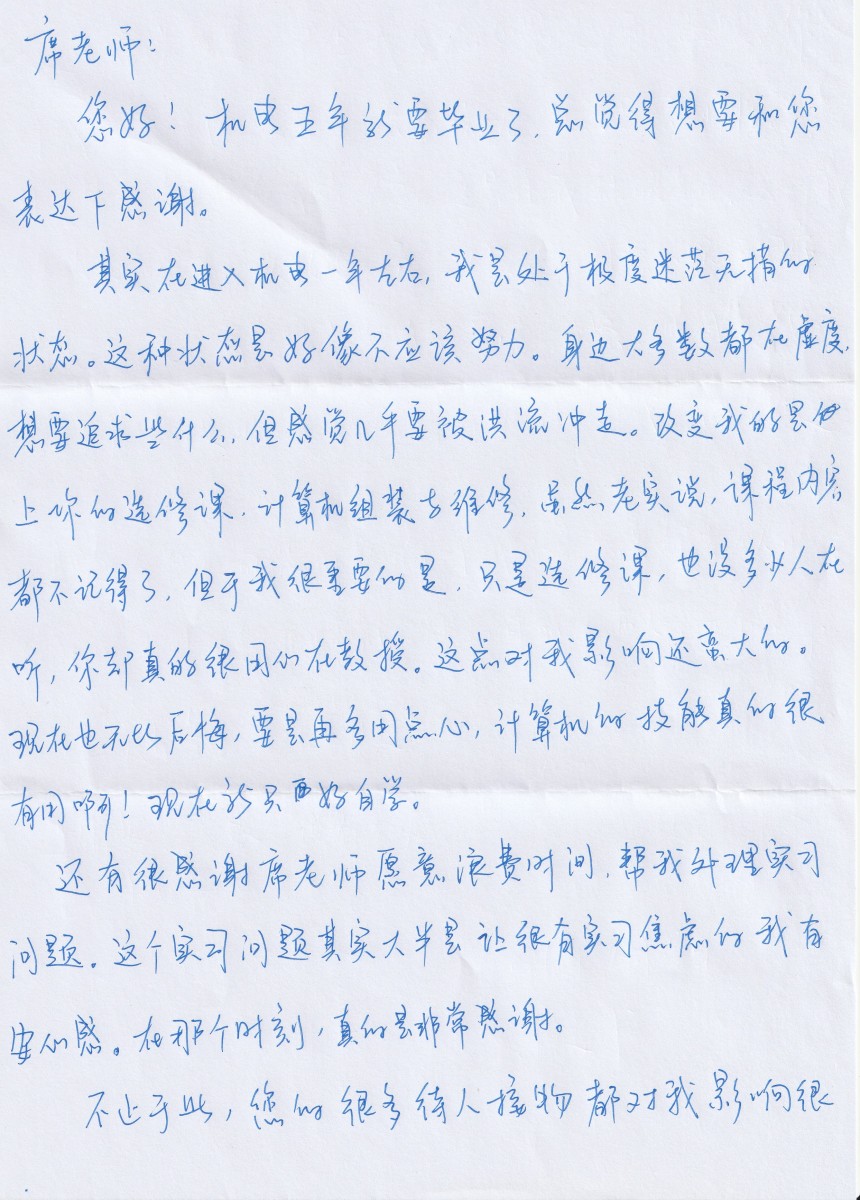 席老师：
您好！机电五年就要毕业了，总觉得想要和您
表达下感谢。
其实在进入机电一年左右，我是处于极度迷茫无措的
状态。这种状态是好像不应该努力。身边大多数都在虚度，
想要追求些什么，但感觉几乎要被洪流冲走。改变我的是
上你的选修课，计算机组装与维修，虽然老实说，课程内容
都不记得了，但于我很重要的是，只是选修课，也没多少人在
听，你却真的很用心在教授。这点对我影响还蛮大的。
现在也无比后悔，要是再多用点心，计算机的技能真的很
有用啊！现在就只好自学。
还有很感谢席老师愿意浪费时间，帮我处理实习
问题。这个实习问题其实大半是让很有实习焦虑的我有
安心感。在那个时刻，真的是非常感谢。
不止于此，您的很多待人接物都对我影响很